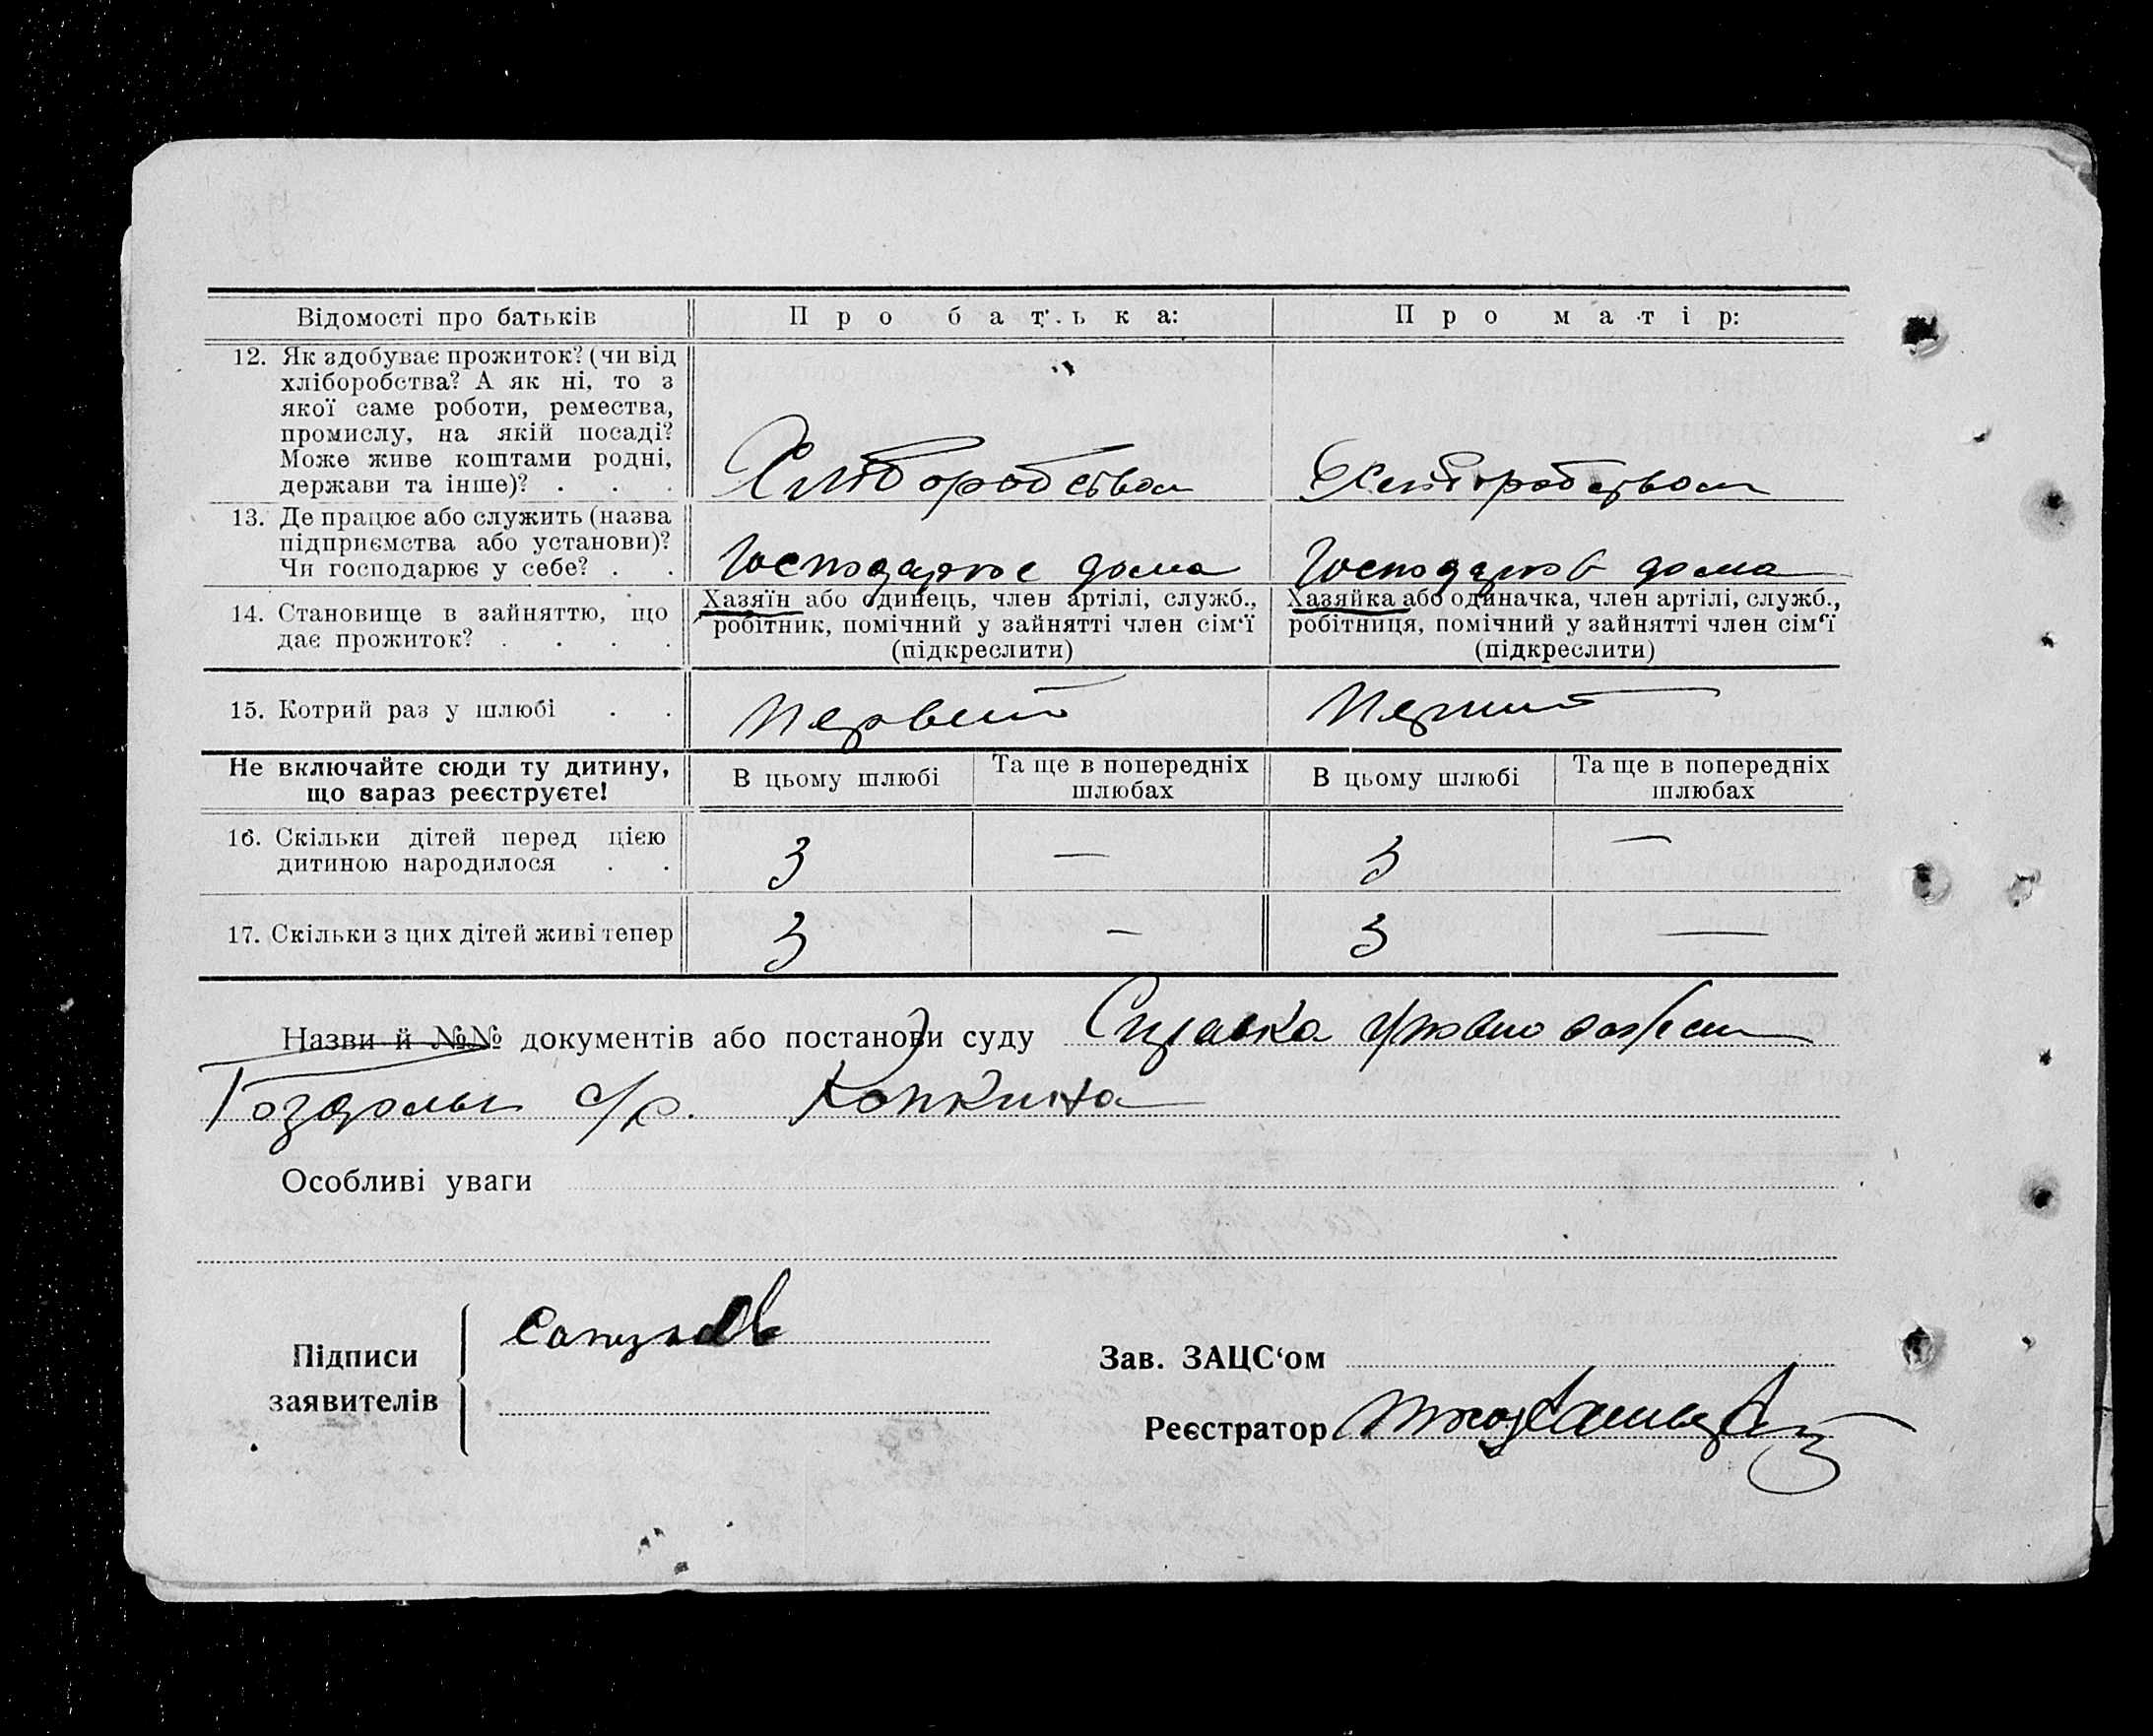 Відомості про батьків
Про батька:
Про матір:
12. Як здобуває прожиток? (чи від
хліборобства? А як ні, то з
якої саме роботи, ремества,
промислу, на якій посаді?
Може живе коштами родні,
держави та інше)? . . .
Хліборобством
Хліборобством
13. Де працює або служить (назва
підприємства або установи)?
Чи господарює у себе? . .
Господарює дома
Господарює дома
14. Становище в зайняттю, що
дає прожиток? . . . .
Хазяїн або одинець, член артілі, служб.,
робітник, помічний у зайнятті член сім'ї
(підкреслити)
Хазяйка або одиначка, член артілі, служб.,
робітниця, помічний у зайнятті член сім'ї
(підкреслити)
15. Котрий раз у шлюбі . .
Первий
Перший
Не включайте сюди ту дитину,
що зараз реєструєте!
В цьому шлюбі
Та ще в попередніх
шлюбах
В цьому шлюбі
Та ще в попередніх
шлюбах
16. Скільки дітей перед цією
дитиною народилося . .
3 — 3 —
17. Скільки з цих дітей живі тепер
3 — 3 —
Назви й №№ документів або постанови суду Справка
с/р.
Особливі уваги
Підписи
заявителів
Зав. ЗАЦС'ом
Реєстратор